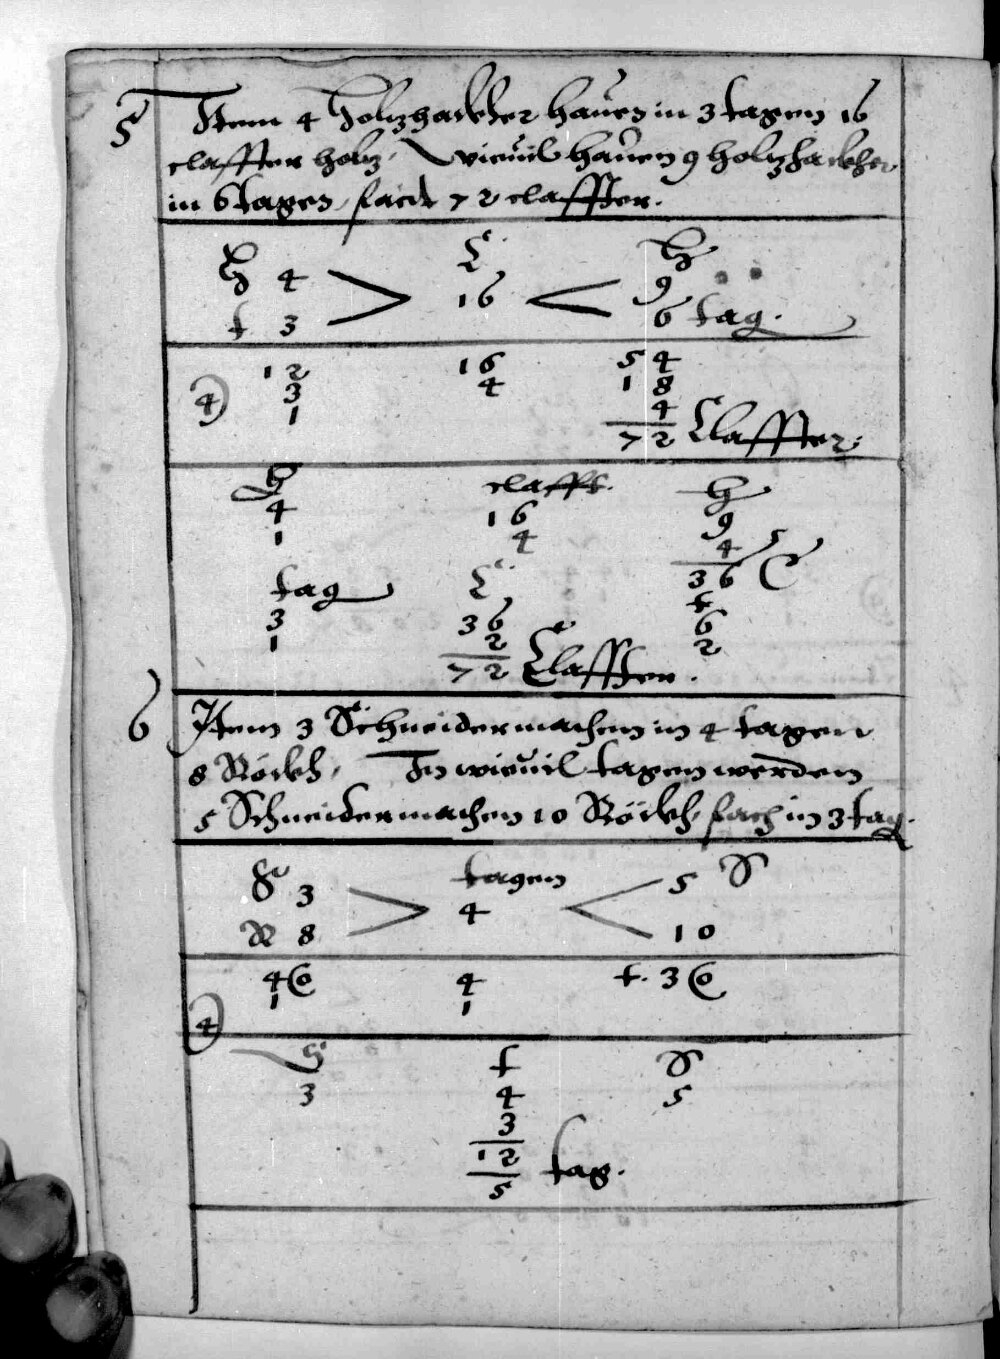 5 Item 4 Holtzhackher hauen in 3 tagen 16
claffter holtz, wieuil hauen 9 holtzhackher
in 6 tagen, facit 72 claffter.
H 4 C 16 H 9
t 3 6 tag.
12 16 54
4) 3 4 18
1 4
72 Claffter.
H clafft. H
4 16 9
1 4 4
36 C
tag C t
3 36 6
1 2 2
72 Claffter.
6 Item 3 Schneider machen in 4 tagen
8 Röckh, In wieuil tagen werden
5 Schneider machen 10 Röckh, fach in 3 tag.
S 3 tagen 5 S
R 8 4 10
40 4 t. 30
4) 1 1
S t S
3 4 5
3
12 tag.
5